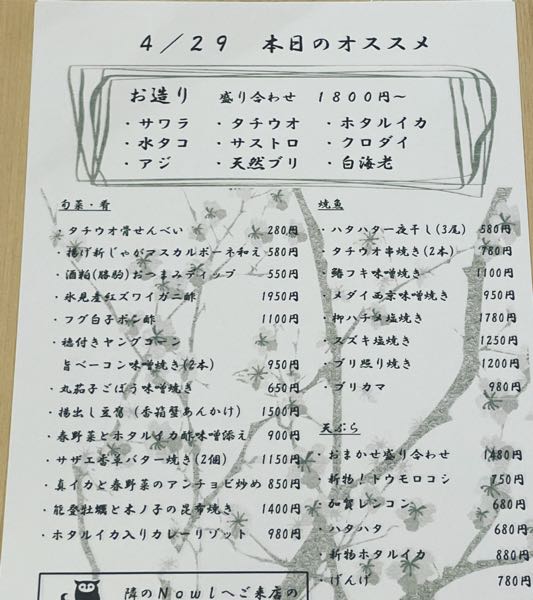 4／29 本日のオススメ
お造り 盛り合わせ 1800円～
・サワラ ・タチウオ ・ホタルイカ
・水タコ ・サストロ ・クロダイ
・アジ ・天然ブリ ・白海老
旬菜・肴
・タチウオ骨せんべい 280円
・揚げ新じゃがマスカルポーネ和え 580円
・酒粕(勝駒)おつまみディップ 550円
・氷見産紅ズワイガニ酢 1950円
・フグ白子ポン酢 1100円
・穂付きヤングコーン
旨ベーコン味噌焼き(2本) 950円
・丸茄子ごぼう味噌焼き 650円
・揚出し豆腐(香箱蟹あんかけ) 1500円
・春野菜とホタルイカ酢味噌添え 900円
・サザエ香草バター焼き(2個) 1150円
・真イカと春野菜のアンチョビ炒め 850円
・能登牡蠣と木ノ子の昆布焼き 1400円
・ホタルイカ入りカレーリゾット 980円
焼魚
・ハタハタ一夜干し(3尾) 580円
・タチウオ串焼き(2本) 780円
・鰆フキ味噌焼き 1100円
・メダイ西京味噌焼き 950円
・柳ハチメ塩焼き 1780円
・スズキ塩焼き 1250円
・ブリ照り焼き 1200円
・ブリカマ 980円
天ぷら
・おまかせ盛り合わせ 1480円
・新物！トウモロコシ 750円
・加賀レンコン 680円
・ハタハタ 680円
・新物ホタルイカ 880円
・げんげ 780円
隣のNowlへご来店の